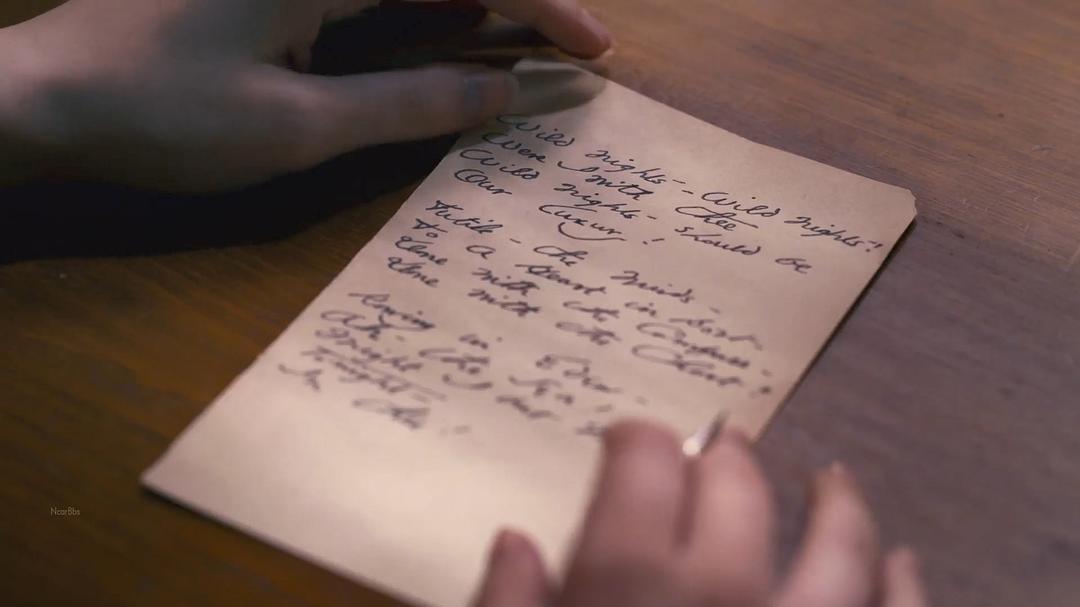 Wild nights - - Wild nights!
Were I with thee
Wild nights - should be
Our luxury!
Futile - the winds -
To a Heart in port
Done with the Compass -
Done with the Chart!
Rowing in Eden -
Ah - the Sea!
Might I but
Tonight -
In thee!
NcarBbs